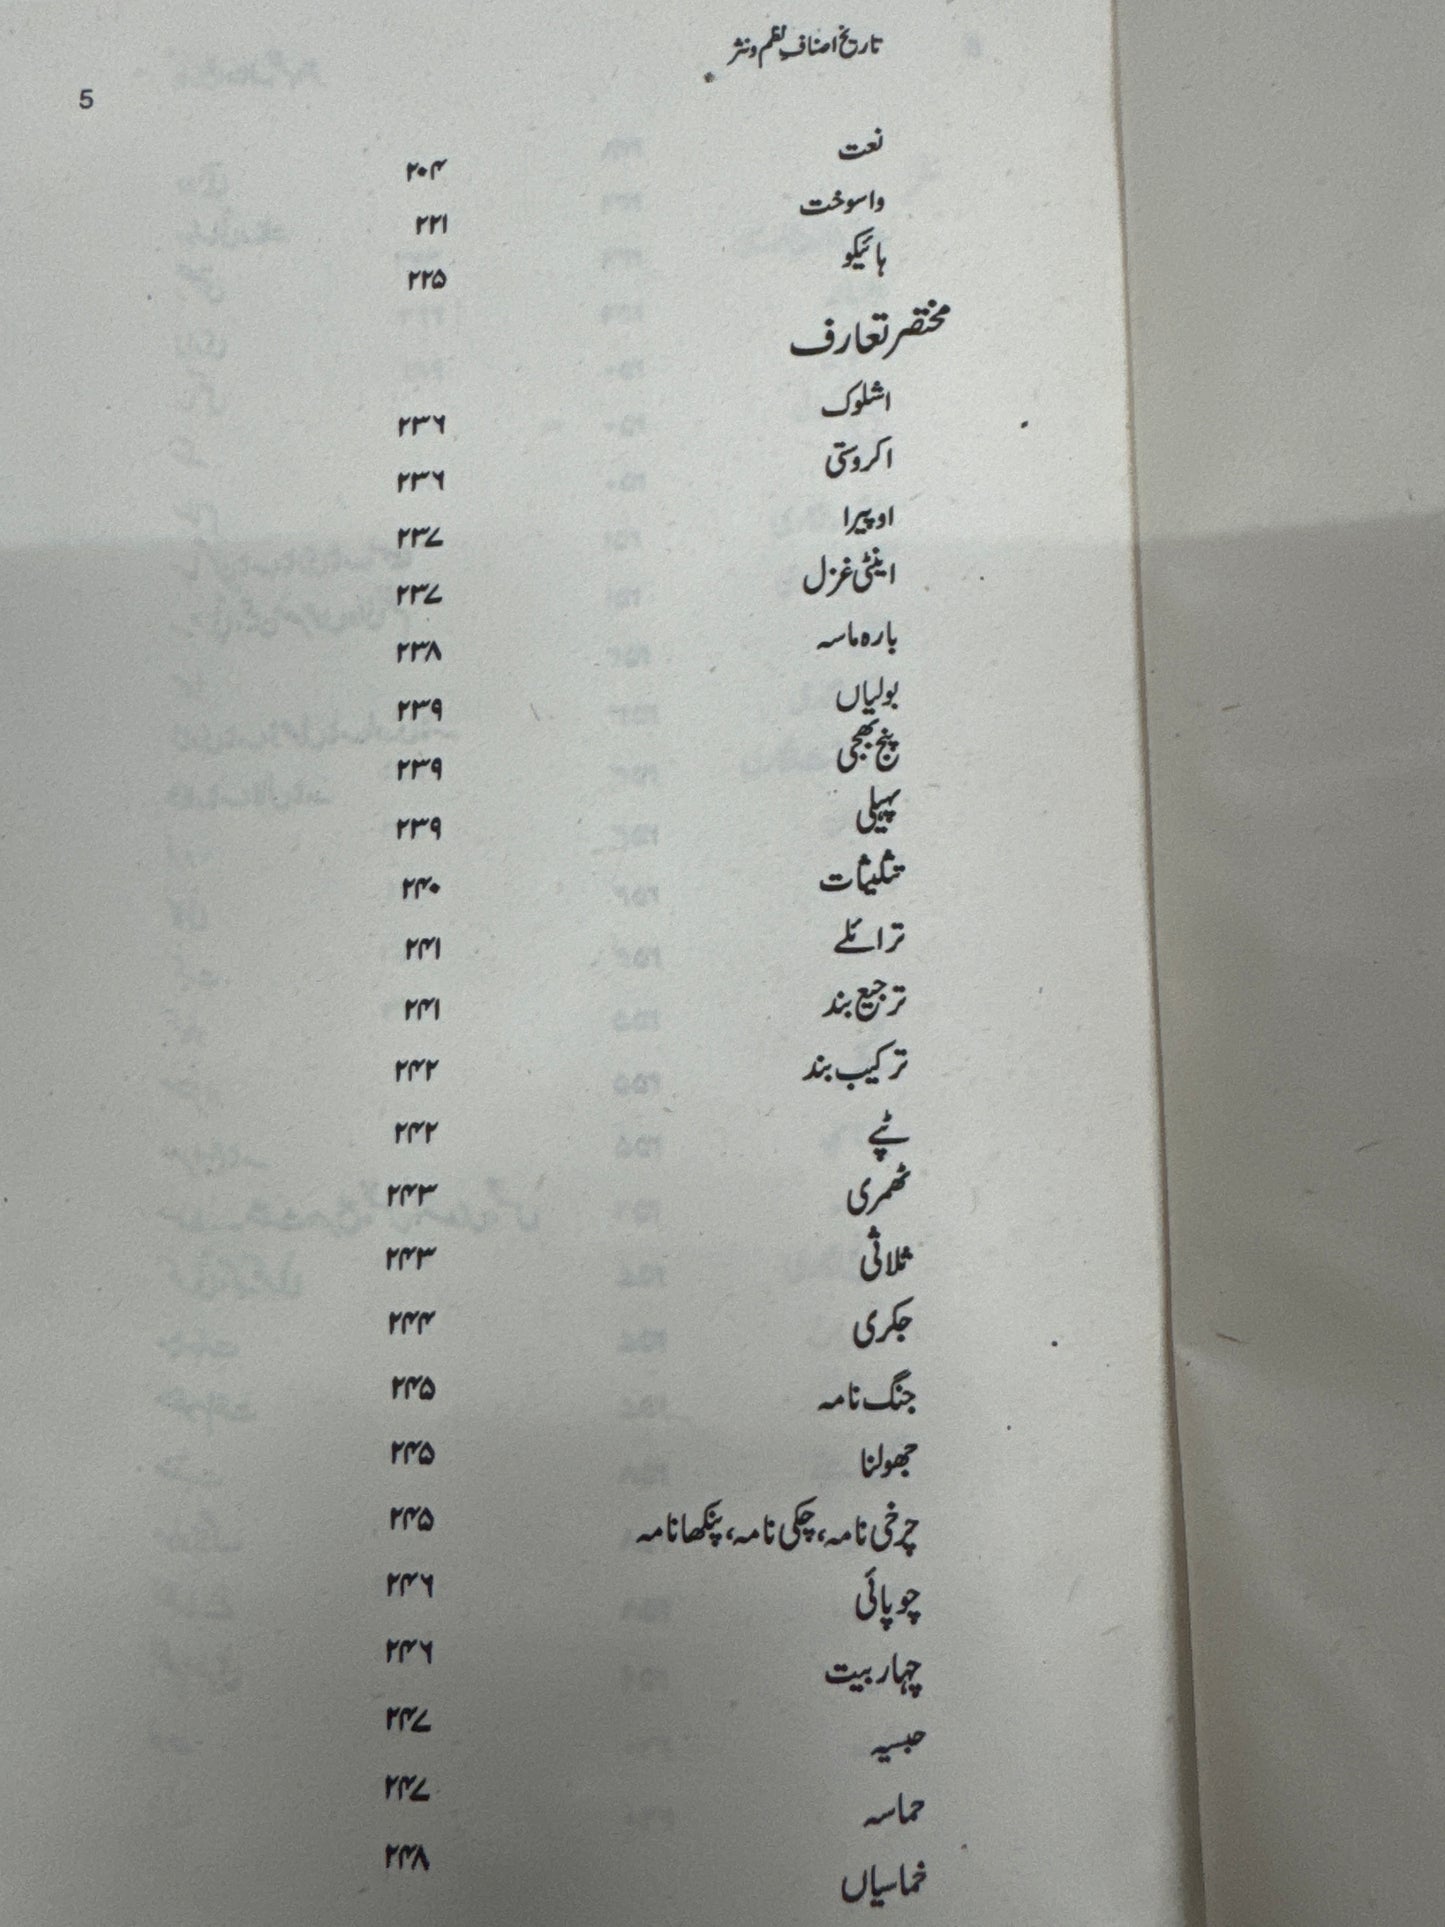 تاریخ اصنافِ نظم و نثر
5
نعت ۲۰۴
واسوخت ۲۲۱
ہائیکو ۲۲۵
مختصر تعارف
اشلوک ۲۳۶
اکروستی ۲۳۶
اوپیرا ۲۳۷
اینٹی غزل ۲۳۷
بارہ ماسہ ۲۳۸
بولیاں ۲۳۹
پنج بھجی ۲۳۹
پہیلی ۲۳۹
تثلیثات ۲۴۰
ترائلے ۲۴۱
ترجیع بند ۲۴۱
ترکیب بند ۲۴۲
ٹپے ۲۴۲
ٹھمری ۲۴۳
ثلاثی ۲۴۳
جکری ۲۴۴
جنگ نامہ ۲۴۵
جھولنا ۲۴۵
چرخی نامہ، چکی نامہ، پنکھا نامہ ۲۴۵
چوپائی ۲۴۶
چہار بیت ۲۴۶
حبسیہ ۲۴۷
حماسہ ۲۴۷
خماسیاں ۲۴۸